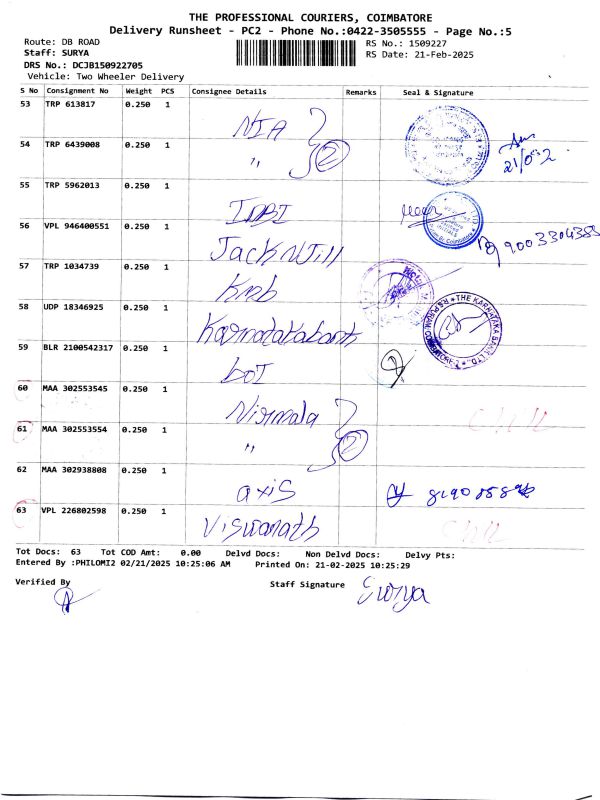 THE PROFESSIONAL COURIERS, COIMBATORE
Delivery Runsheet - PC2 - Phone No.:0422-3505555 - Page No.:5
Route: DB ROAD RS No.: 1509227
Staff: SURYA RS Date: 21-Feb-2025
DRS No.: DCJB150922705
Vehicle: Two Wheeler Delivery
S No Consignment No Weight PCS Consignee Details Remarks Seal & Signature
53 TRP 613817 0.250 1 NIA
54 TRP 6439008 0.250 1 " 2
55 TRP 5962013 0.250 1 IDBI
56 VPL 946400551 0.250 1 Jack Will 9003304355
57 TRP 1034739 0.250 1 Kmb
58 UDP 18346925 0.250 1 Karnatakabank
59 BLR 2100542317 0.250 1 boI
60 MAA 302553545 0.250 1 Nirmala
61 MAA 302553554 0.250 1 " 2
62 MAA 302938808 0.250 1 axis
63 VPL 226802598 0.250 1 Viswanath
Tot Docs: 63 Tot COD Amt: 0.00 Delvd Docs: Non Delvd Docs: Delvy Pts:
Entered By :PHILOMI2 02/21/2025 10:25:06 AM Printed On: 21-02-2025 10:25:29
Verified By Staff Signature Surya